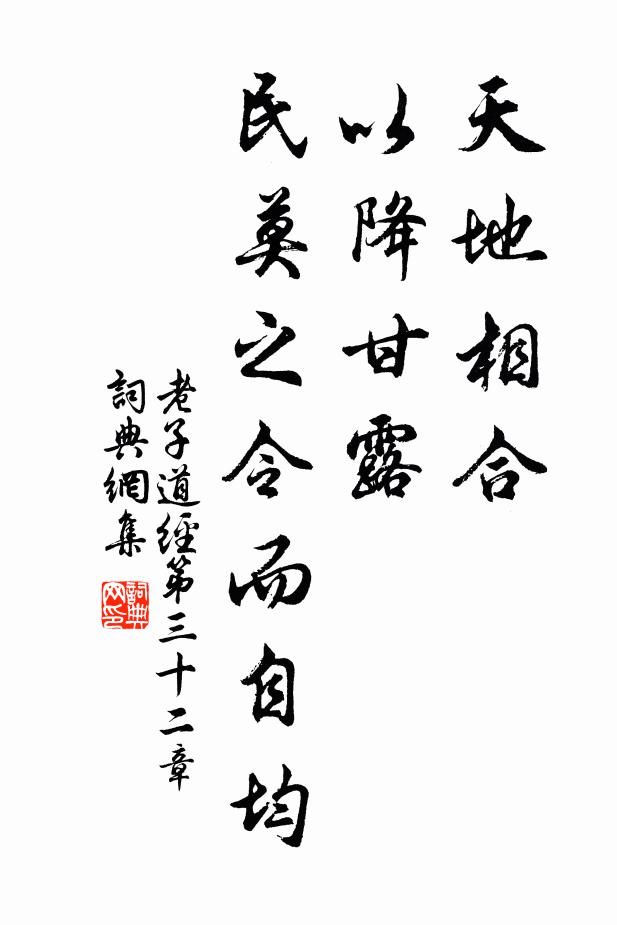 天地相合
以降甘露
民莫之令而自均
老子道經第三十二章
詞典網集
詞典
网印